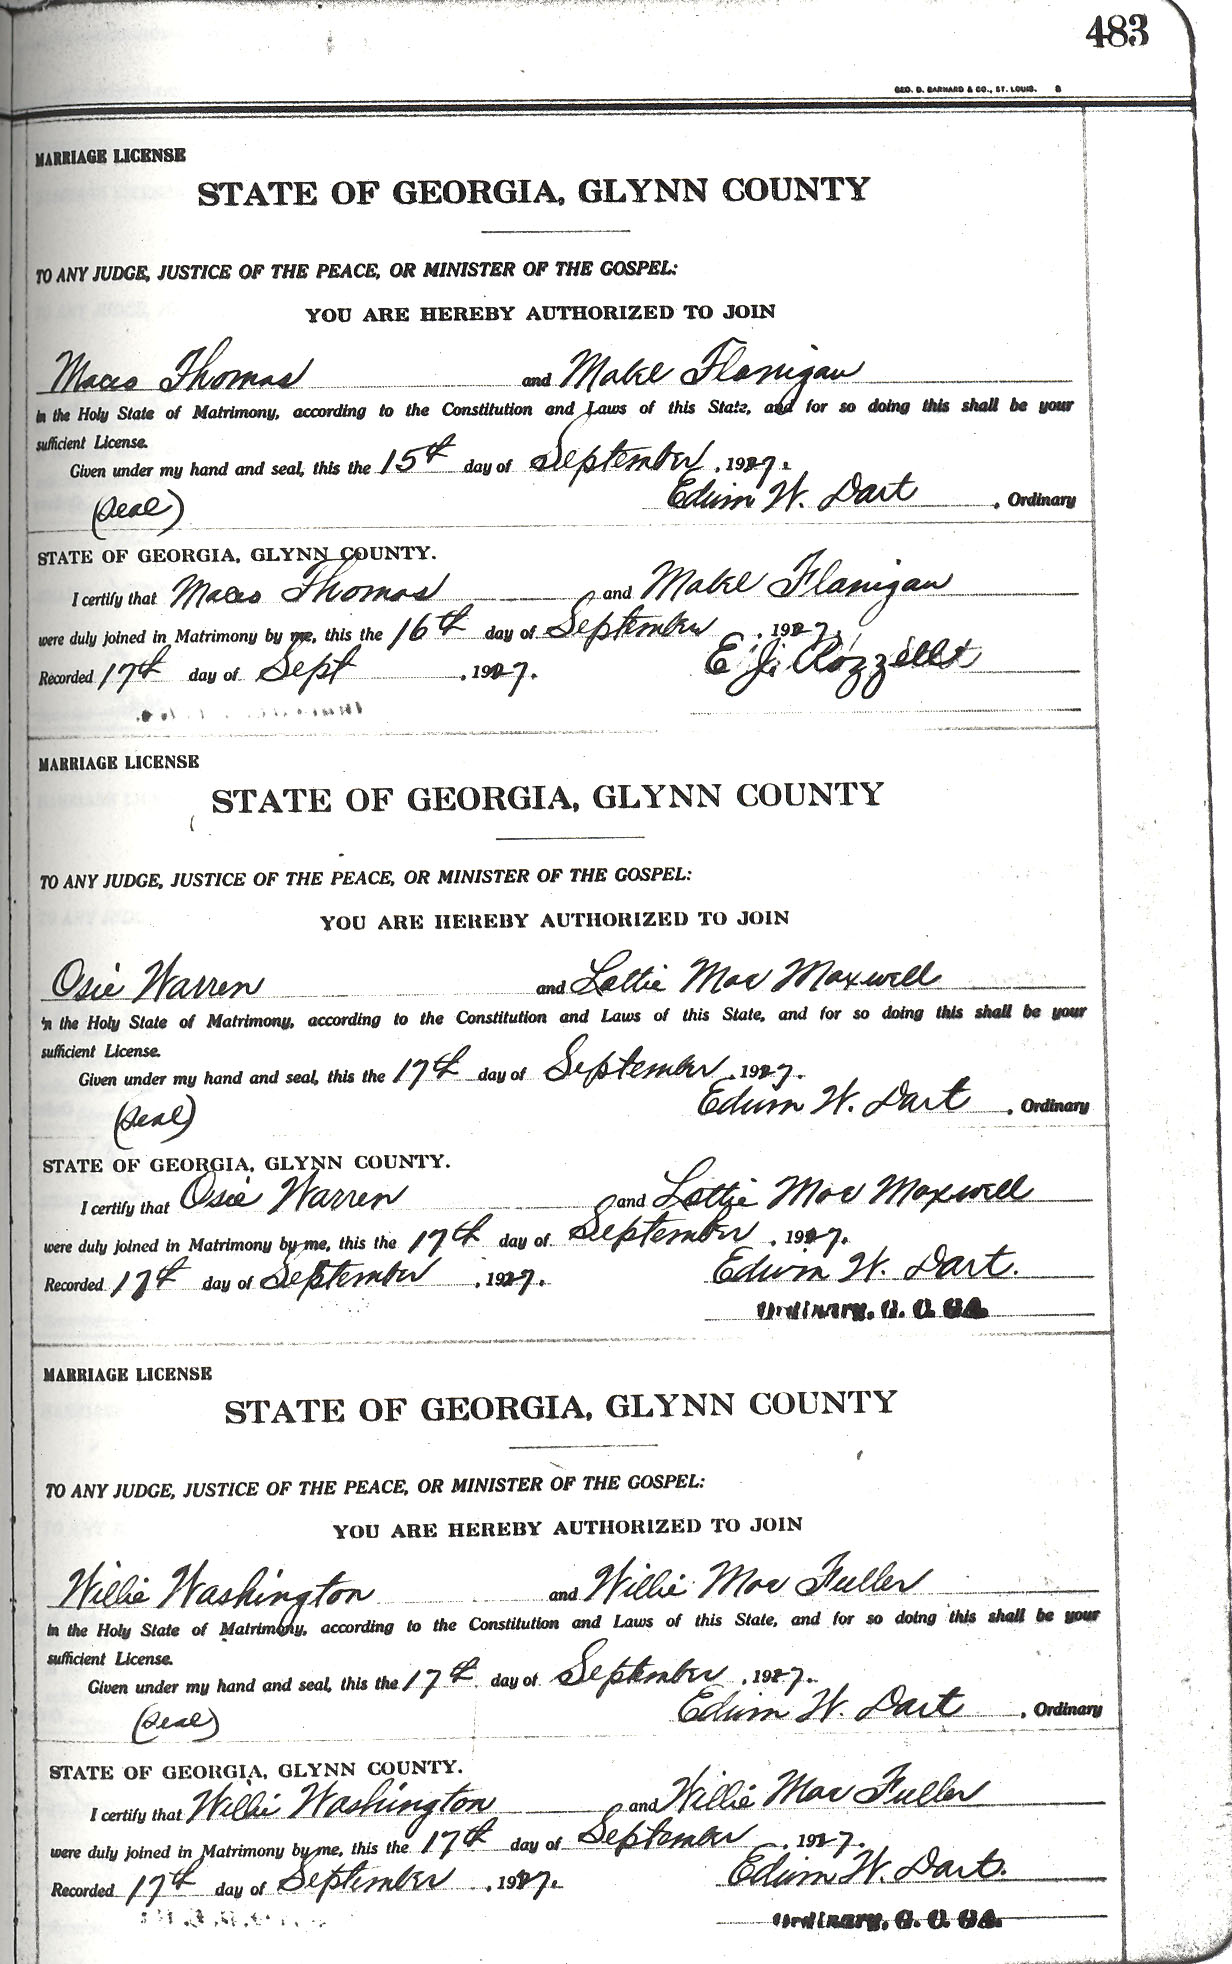 483
GEO. D. BARNARD & CO., ST. LOUIS. 8
MARRIAGE LICENSE
STATE OF GEORGIA, GLYNN COUNTY
TO ANY JUDGE, JUSTICE OF THE PEACE, OR MINISTER OF THE GOSPEL:
YOU ARE HEREBY AUTHORIZED TO JOIN
Maceo Thomas and Makel Flanigan
in the Holy State of Matrimony, according to the Constitution and Laws of this State, and for so doing this shall be your
sufficient License.
Given under my hand and seal, this the 15th day of September, 1927.
(Seal) Edwin W. Dart, Ordinary
STATE OF GEORGIA, GLYNN COUNTY.
I certify that Maceo Thomas and Makel Flanigan
were duly joined in Matrimony by me, this the 16th day of September, 1927.
Recorded 17th day of Sept, 1927. E. J.
MARRIAGE LICENSE
STATE OF GEORGIA, GLYNN COUNTY
TO ANY JUDGE, JUSTICE OF THE PEACE, OR MINISTER OF THE GOSPEL:
YOU ARE HEREBY AUTHORIZED TO JOIN
Osie Warren and Lottie Mae Maxwell
in the Holy State of Matrimony, according to the Constitution and Laws of this State, and for so doing this shall be your
sufficient License.
Given under my hand and seal, this the 17th day of September, 1927.
(Seal) Edwin W. Dart, Ordinary
STATE OF GEORGIA, GLYNN COUNTY.
I certify that Osie Warren and Lottie Mae Maxwell
were duly joined in Matrimony by me, this the 17th day of September, 1927.
Recorded 17th day of September, 1927. Edwin W. Dart.
Ordinary, G. C. GA.
MARRIAGE LICENSE
STATE OF GEORGIA, GLYNN COUNTY
TO ANY JUDGE, JUSTICE OF THE PEACE, OR MINISTER OF THE GOSPEL:
YOU ARE HEREBY AUTHORIZED TO JOIN
Willie Washington and Willie Mae Fuller
in the Holy State of Matrimony, according to the Constitution and Laws of this State, and for so doing this shall be your
sufficient License.
Given under my hand and seal, this the 17th day of September, 1927.
(Seal) Edwin W. Dart, Ordinary
STATE OF GEORGIA, GLYNN COUNTY.
I certify that Willie Washington and Willie Mae Fuller
were duly joined in Matrimony by me, this the 17th day of September, 1927.
Recorded 17th day of September, 1927. Edwin W. Dart.
Ordinary, G. C. GA.